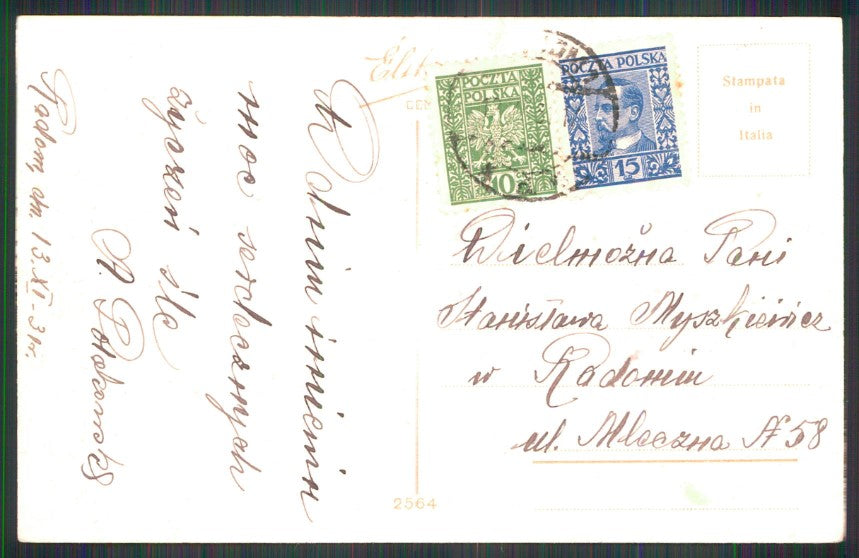 W dniu imienin
moc serdecznych
życzeń śle
A.
Radom dn 13.XI-31r.
POCZTA
POLSKA
10
POCZTA POLSKA
15
Stampata
in
Italia
Wielmożna Pani
Stanisława Myszkiewicz
w Radomiu
ul. Mleczna N 58
2564